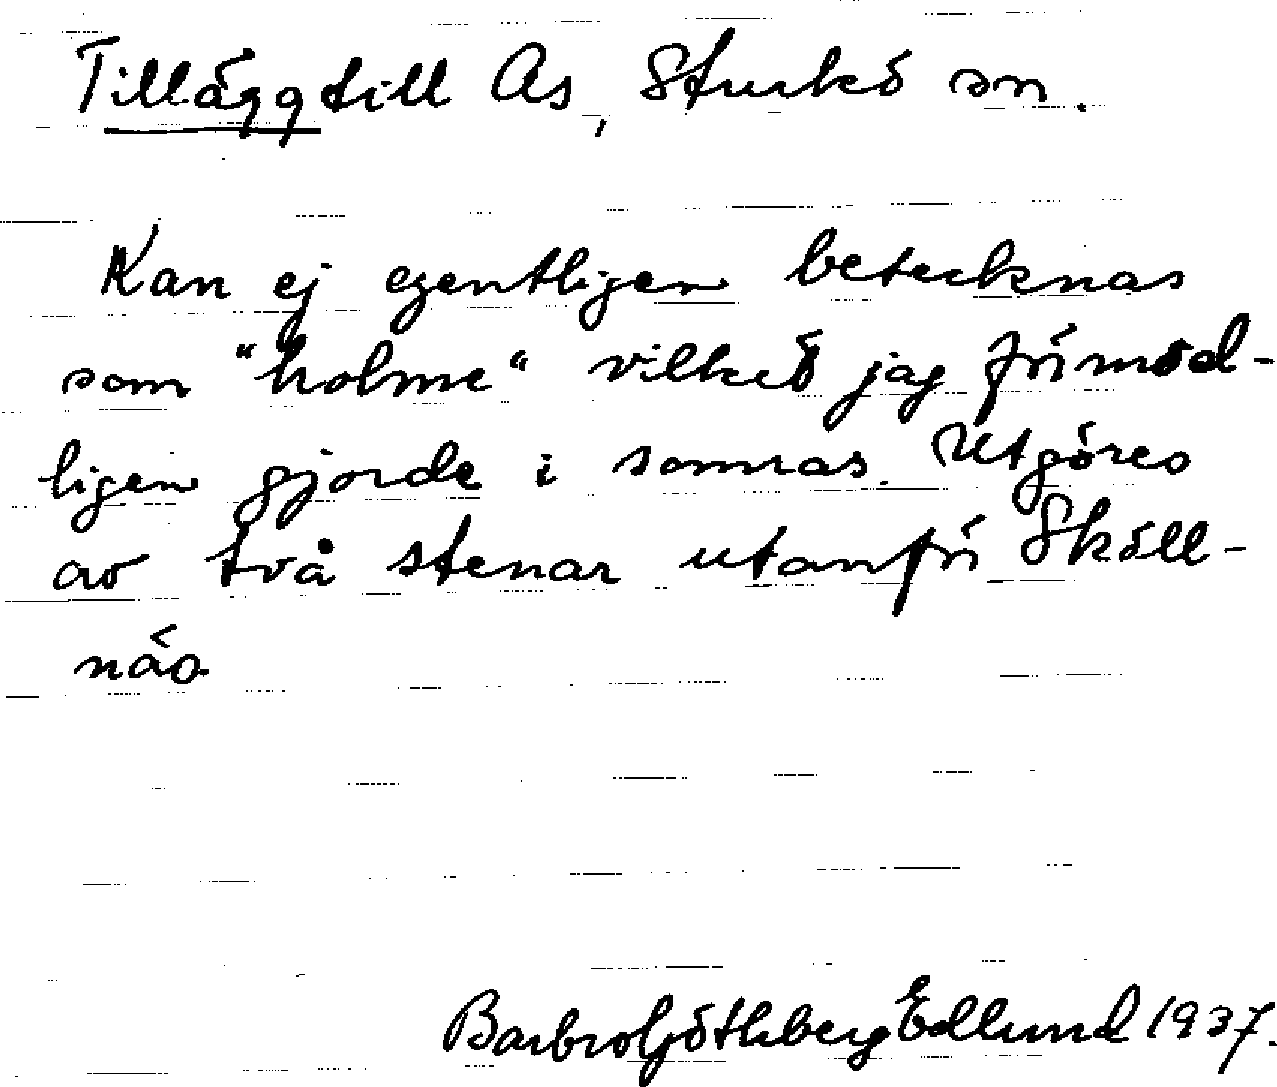 Tillägg till As, Sturkö sn.
Kan ej egentligen betecknas
som "holme" vilket jag förmod-
ligen gjorde i somras. Utgöres
av två stenar utanför Sköll-
näs
Barbro Göthberg Edlund 1937.